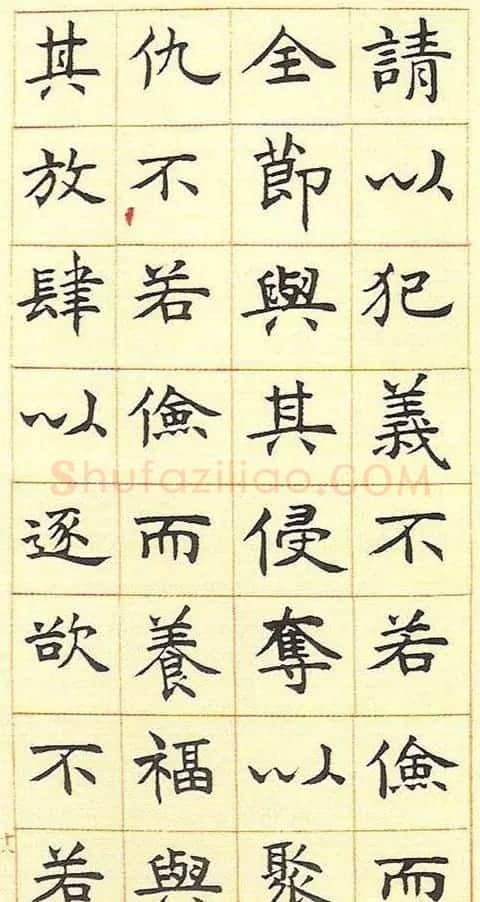 請以犯義不若儉而
全節與其侵奪以聚
仇不若儉而養福與
其放肆以逐欲不若
Shufaziliao.COM